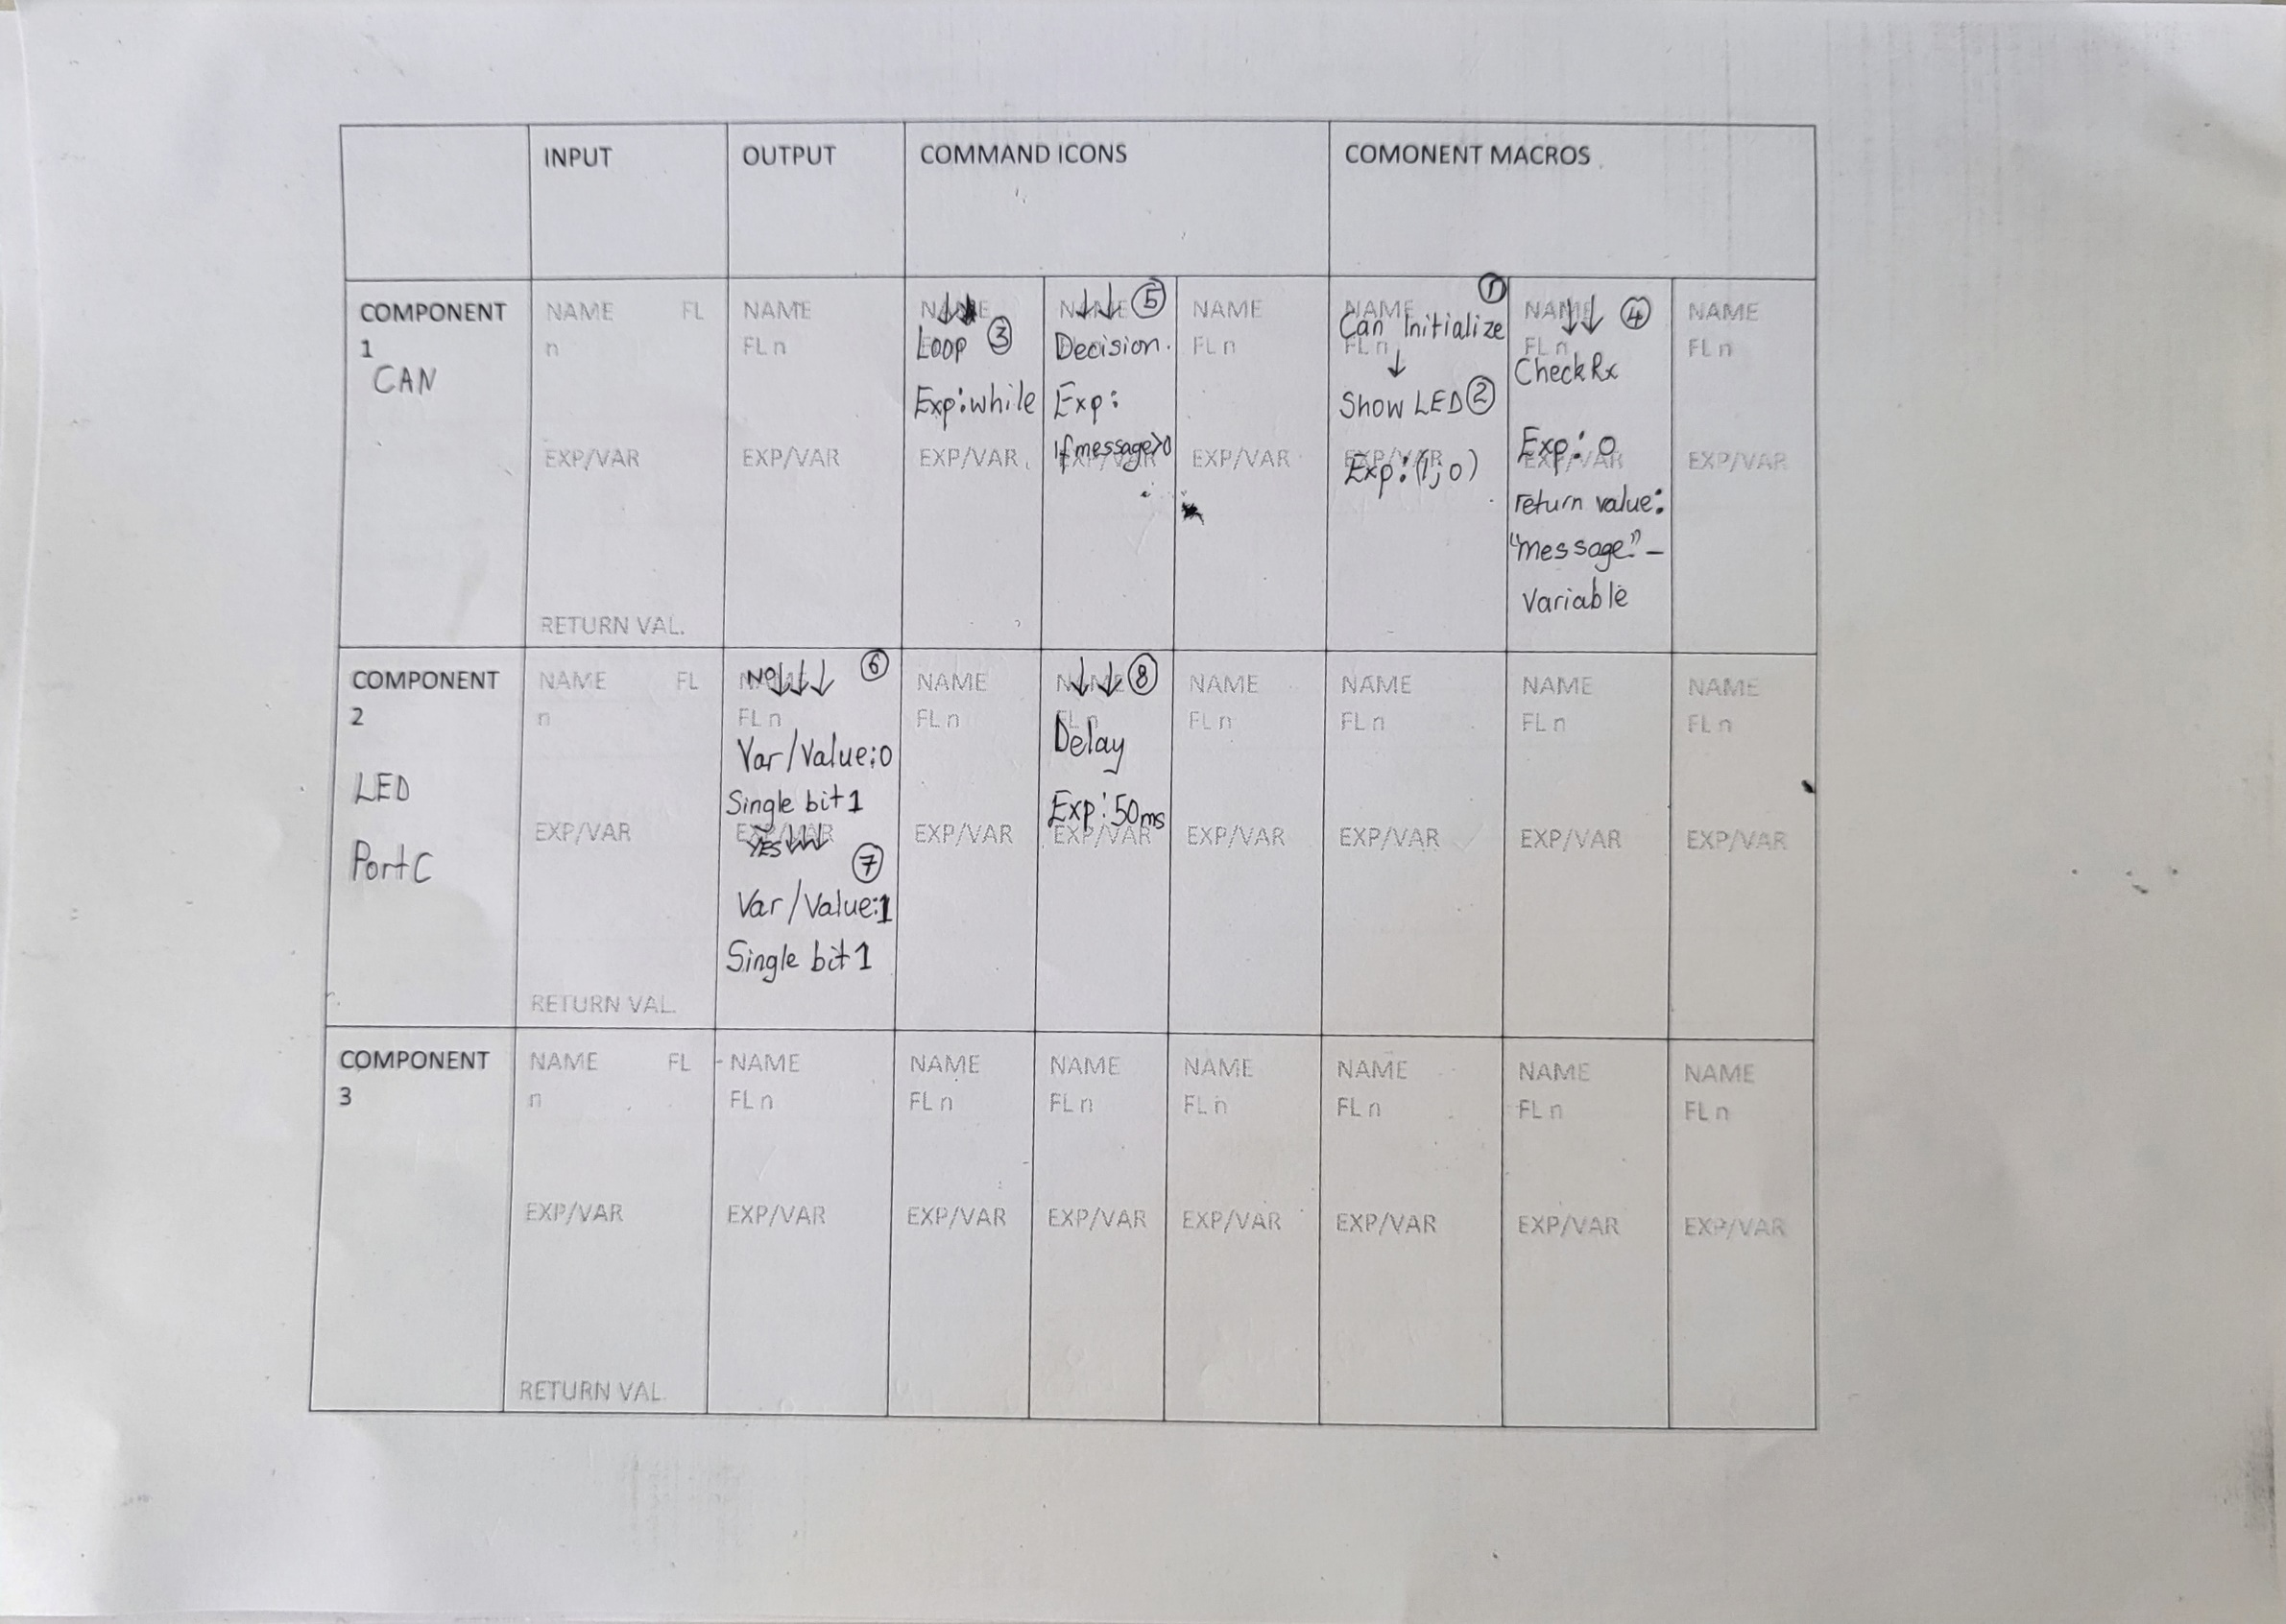 INPUT
OUTPUT
COMMAND ICONS
COMONENT MACROS
COMPONENT
1
CAN
NAME FL
n
EXP/VAR
RETURN VAL.
NAME
FL n
EXP/VAR
NAME
Loop ③
Exp:while
EXP/VAR
NAME ⑤
Decision.
Exp:
If message>0
EXP/VAR
NAME
FL n
EXP/VAR
NAME ①
Can Initialize
FL n
Show LED ②
EXP/VAR
Exp:(1;0)
NAME ④
FL n
CheckRx
Exp: 0
EXP/VAR
return value:
"message" –
Variable
NAME
FL n
EXP/VAR
COMPONENT
2
LED
PortC
NAME FL
n
EXP/VAR
RETURN VAL.
NAME
NO ⑥
FL n
Var/Value:0
Single bit 1
EXP/VAR
YES ⑦
Var/Value:1
Single bit 1
NAME
FL n
EXP/VAR
NAME ⑧
FL n
Delay
Exp:50ms
EXP/VAR
NAME
FL n
EXP/VAR
NAME
FL n
EXP/VAR
NAME
FL n
EXP/VAR
NAME
FL n
EXP/VAR
COMPONENT
3
NAME FL
n
EXP/VAR
RETURN VAL.
NAME
FL n
EXP/VAR
NAME
FL n
EXP/VAR
NAME
FL n
EXP/VAR
NAME
FL n
EXP/VAR
NAME
FL n
EXP/VAR
NAME
FL n
EXP/VAR
NAME
FL n
EXP/VAR